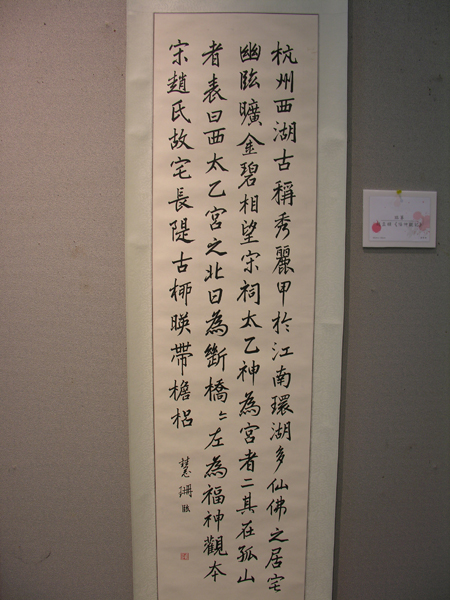 杭州西湖古稱秀麗甲於江南環湖多仙佛之居宅
幽眩曠金碧相望宋祠太乙神為宮者二其在孤山
者表曰西太乙宮之北曰為斷橋〻左為福神觀本
宋趙氏故宅長隄古栁暎帶檐梠
慧珊臨